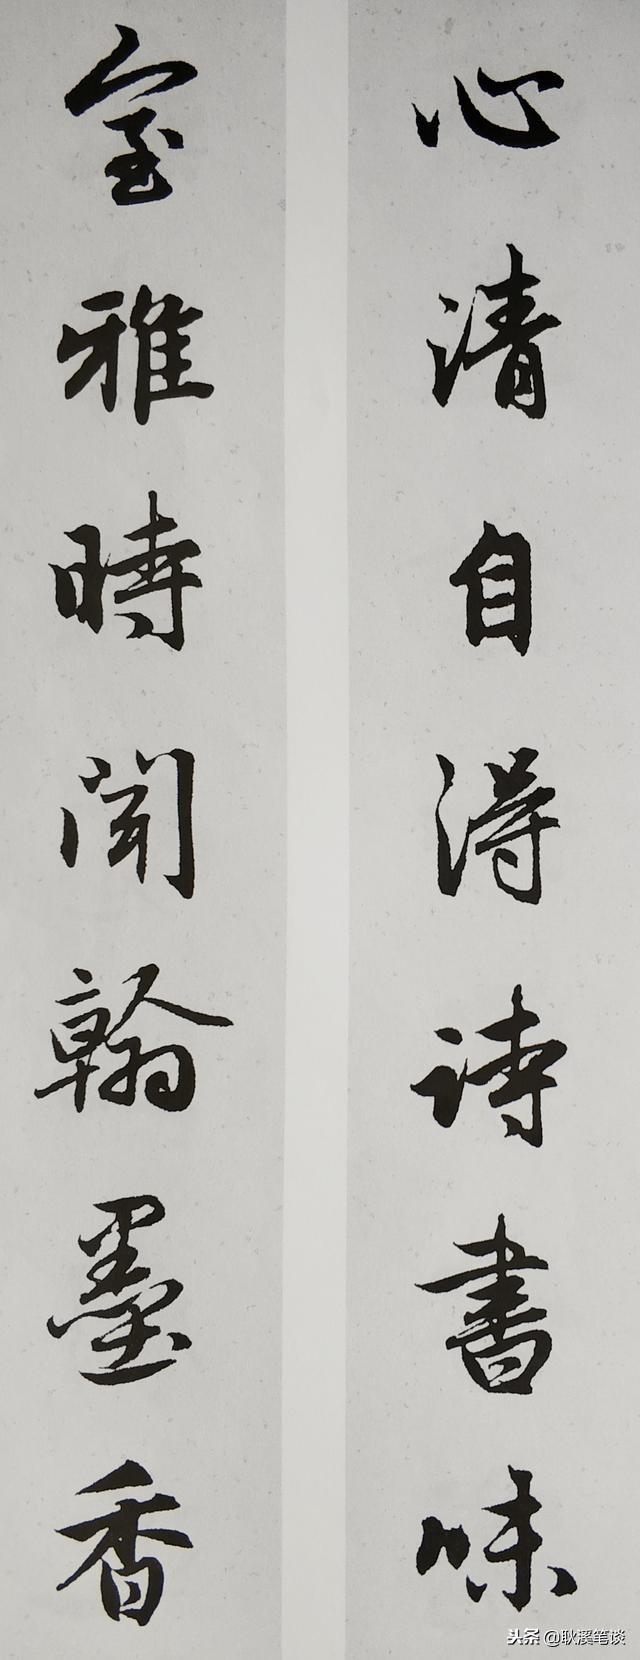 心清自得詩書味
室雅時聞翰墨香
头条 @耿溪笔谈